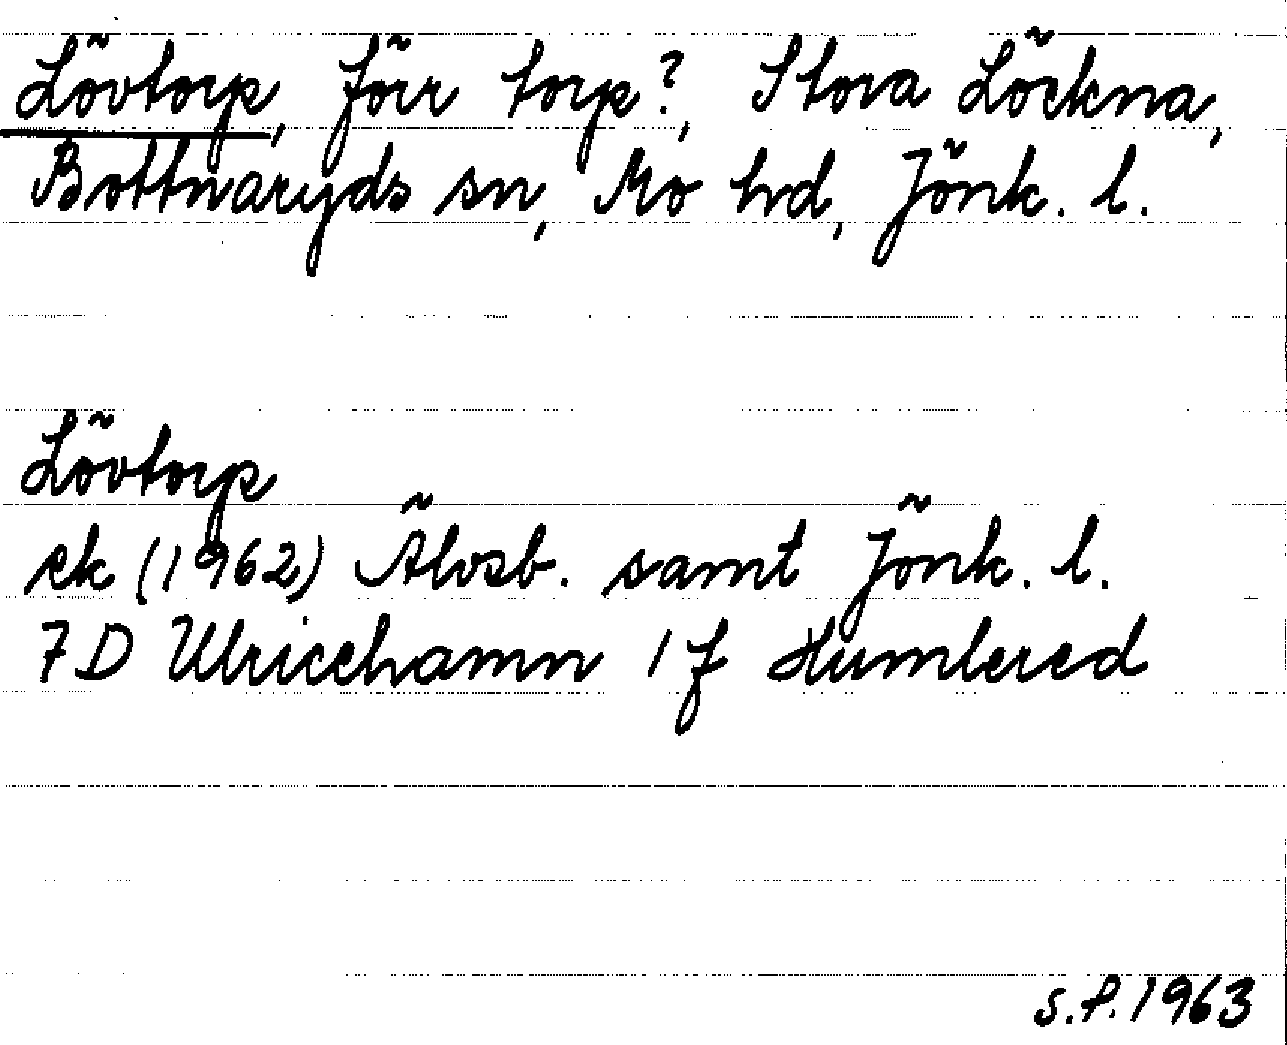 Lövtorp, förr torp?, Stora Löckna,
Bottnaryds sn, Mo hd, Jönk. l.
Lövtorp
ek (1962) Älvsb. samt Jönk. l.
7D Ulricehamn 1f Humlered
S.P. 1963